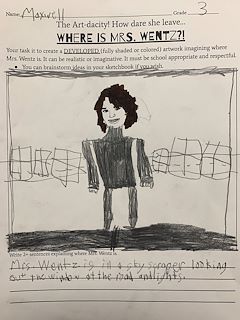 Name: Maxwell Grade 3
The Art-dacity! How dare she leave...
WHERE IS MRS. WENTZ?!
Your task it to create a DEVELOPED (fully shaded or colored) artwork imagining where
Mrs. Wentz is. It can be realistic or imaginative. It must be school appropriate and respectful.
• You can brainstorm ideas in your sketchbook if you wish.
Write 2+ sentences explaining where Mrs. Wentz is.
Mrs. Wentz is in a sky scraper looking
out the window at the road and lights.